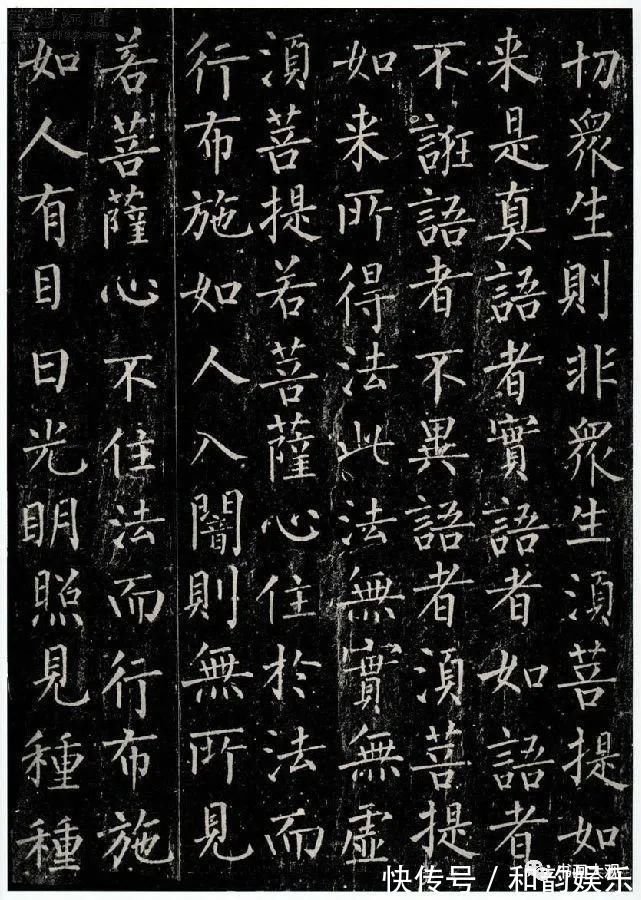 切衆生則非衆生須菩提如
来是真語者實語者如語者
不誑語者不異語者須菩提
如来所得法此法無實無虛
須菩提若菩薩心住於法而
行布施如人入闇則無所見
若菩薩心不住法而行布施
如人有目日光明照見種種
快传号 / 和韵娱乐